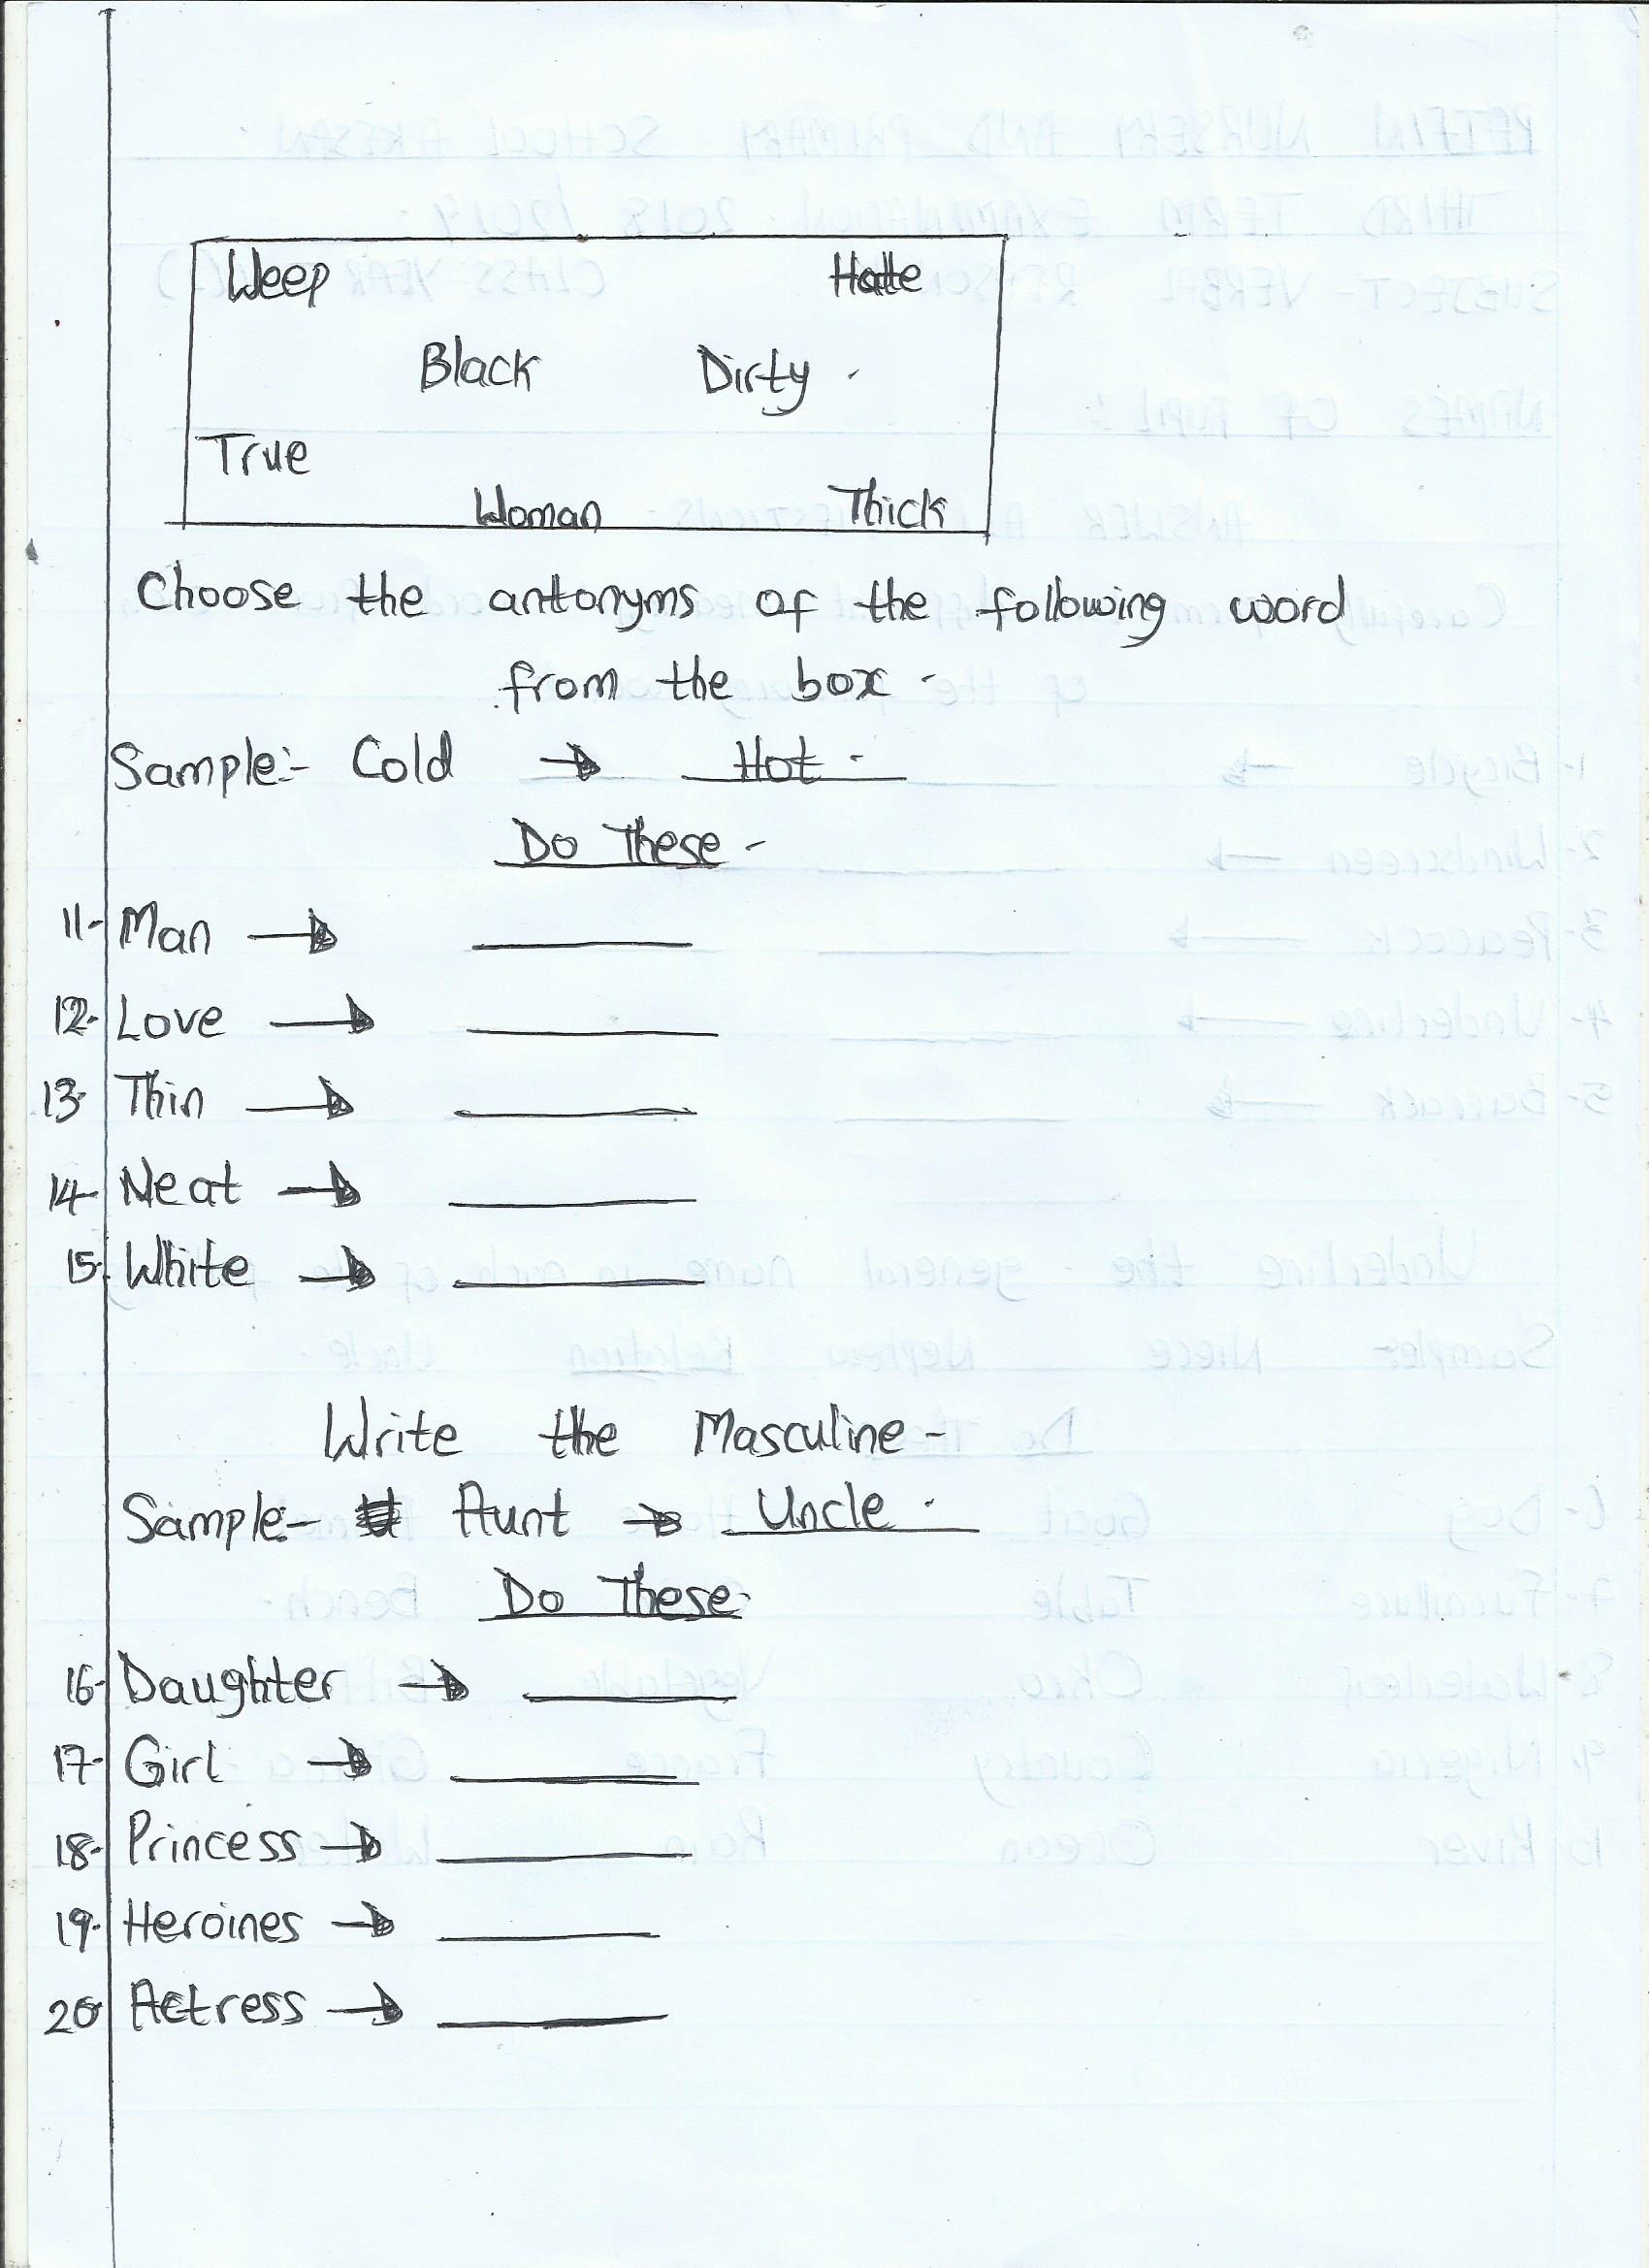 Weep Hate
Black Dirty .
True
Woman Thick
Choose the antonyms of the following word
from the box -
Sample:- Cold → Hot .
Do These -
11- Man → ________
12- Love → ________
13- Thin → ________
14- Neat → ________
15- White → ________
Write the Masculine -
Sample:- Aunt → Uncle .
Do These-
16- Daughter → ________
17- Girl → ________
18- Princess → ________
19- Heroines → ________
20 Actress → ________